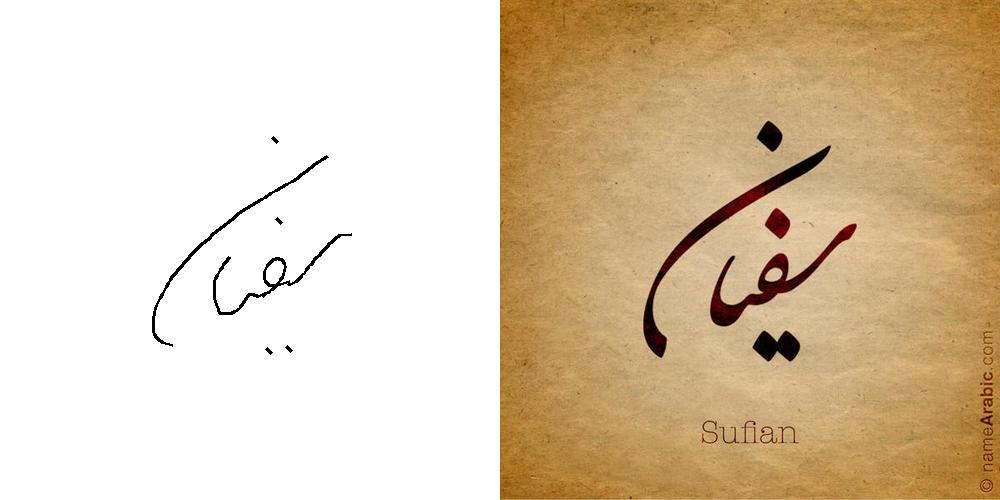 سفيان
سفيان
Sufian
© nameArabic.com